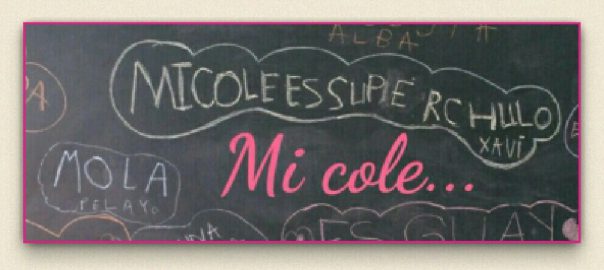 ALBA
MI COLE ES SUPER CHULO
XAVI
Mi cole...
MOLA
PELAYO
ES GUAY